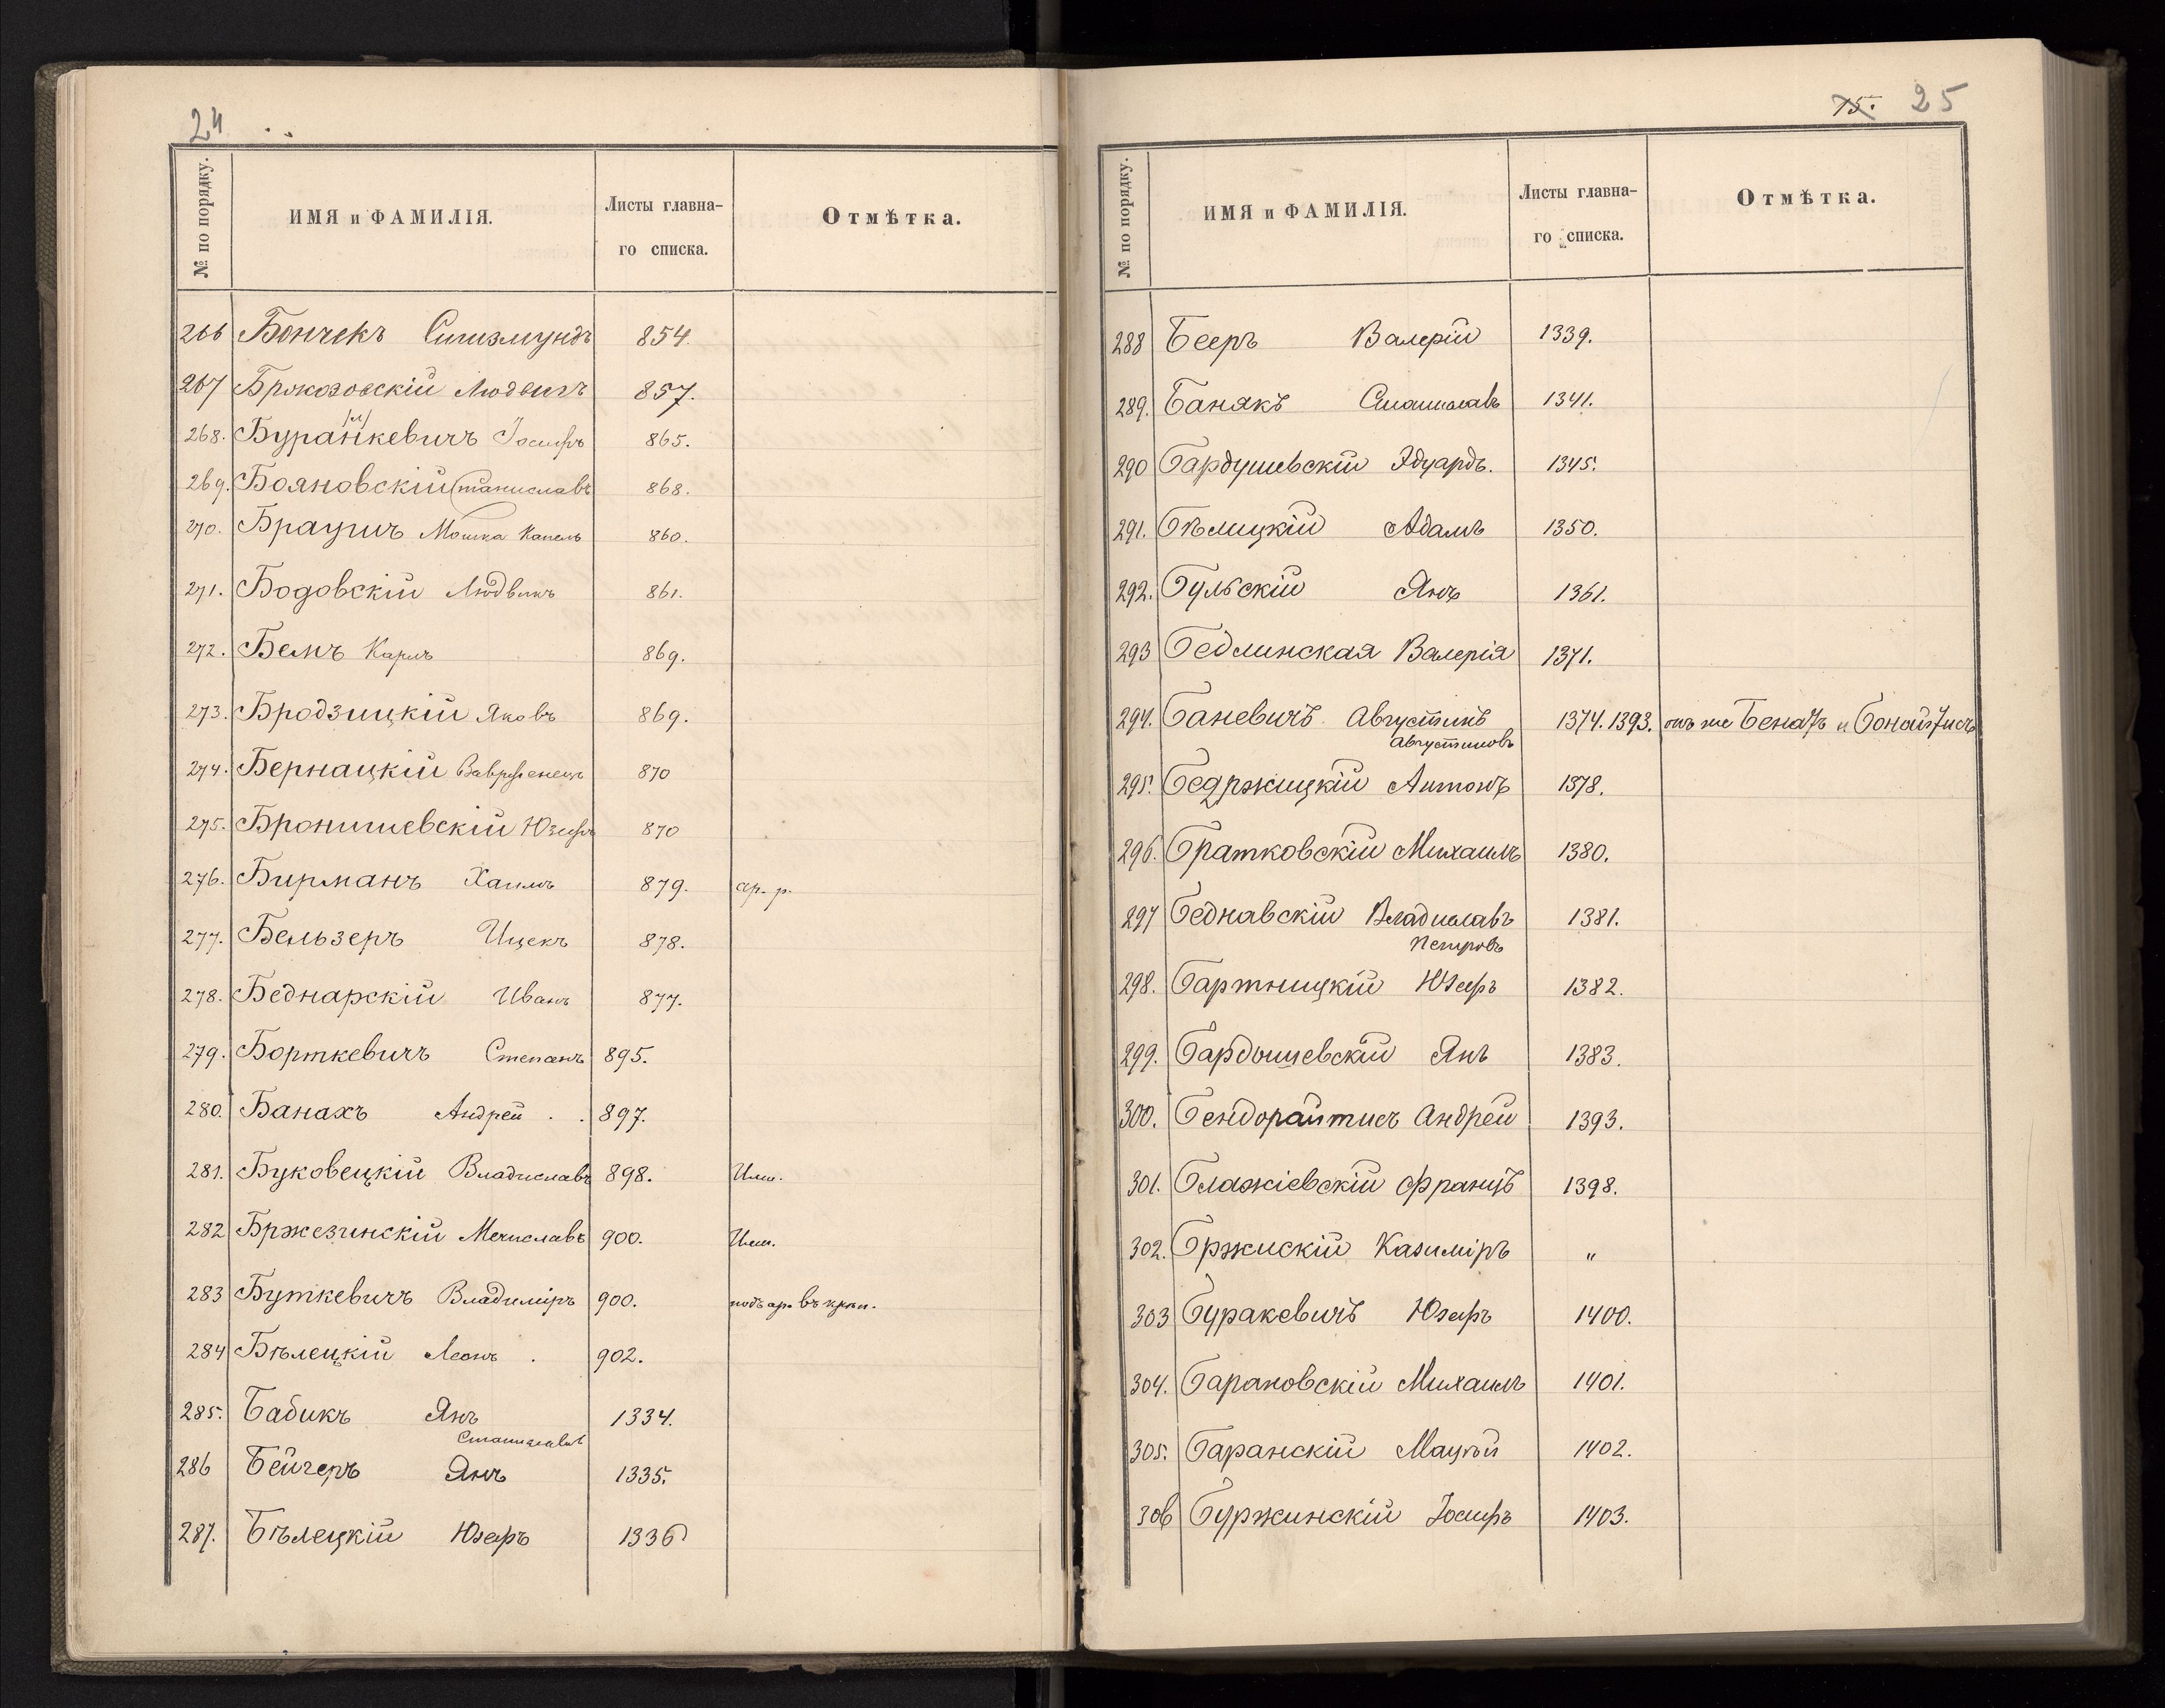 24
№ по порядку. ИМЯ и ФАМИЛІЯ. Листы главна-
го списка. Отмѣтка.
266 Бончекъ Сигизмундъ 854.
267 Бржозовскій Людвигъ 857.
268. Буранкевичъ Іосифъ 865.
269. Бояновскій Станиславъ 868.
270. Браунъ Мошка 860.
271. Бодовскій Людвикъ 861.
272. Бемъ Карлъ 869.
273. Бродзицкій Яковъ 869.
274. Бернацкій 870
275. Бронишевскій Юзефъ 870
276. Бирманъ Хаимъ 879. ар. р.
277. Бельзеръ Ицекъ 878.
278. Беднарскій Иванъ 877.
279. Борткевичъ Степанъ 895.
280. Банахъ Андрей 897.
281. Буковецкій Владиславъ 898.
282 Бржезинскій Мечиславъ 900.
283 Буткевичъ Владиміръ 900. подъ ар. въ крѣп.
284 Бѣлецкій Леонъ 902.
285. Бабикъ Янъ 1334.
Станиславъ
286 Бейгеръ Янъ 1335.
287. Бѣлецкій Юзефъ 1336
15. 25
№ по порядку. ИМЯ и ФАМИЛІЯ. Листы главна-
го списка. Отмѣтка.
288 Бееръ Валерій 1339.
289. Банякъ Станиславъ 1341.
290 Бардушевскій Эдуардъ. 1345.
291. Бѣлицкій Адамъ 1350.
292. Бульскій Янъ 1361.
293 Бедлинская Валерія 1371.
294. Баневичъ Августинъ 1374. 1393. онъ же и
Августиновъ
295. Беджицкій Антонъ 1378.
296. Братковскій Михаилъ 1380.
297 Беднавскій Владиславъ 1381.
Петровъ
298. Бартницкій Юзефъ 1382.
299. Бардышевскій Янъ 1383.
300. Бендорайтисъ Андрей 1393.
301. Блажіевскій Францъ 1398.
302. Бржискій Казиміръ "
303 Буракевичъ Юзефъ 1400.
304. Барановскій Михаилъ 1401.
305. Баранскій Мацѣй 1402.
306 Буржинскій Іосифъ 1403.